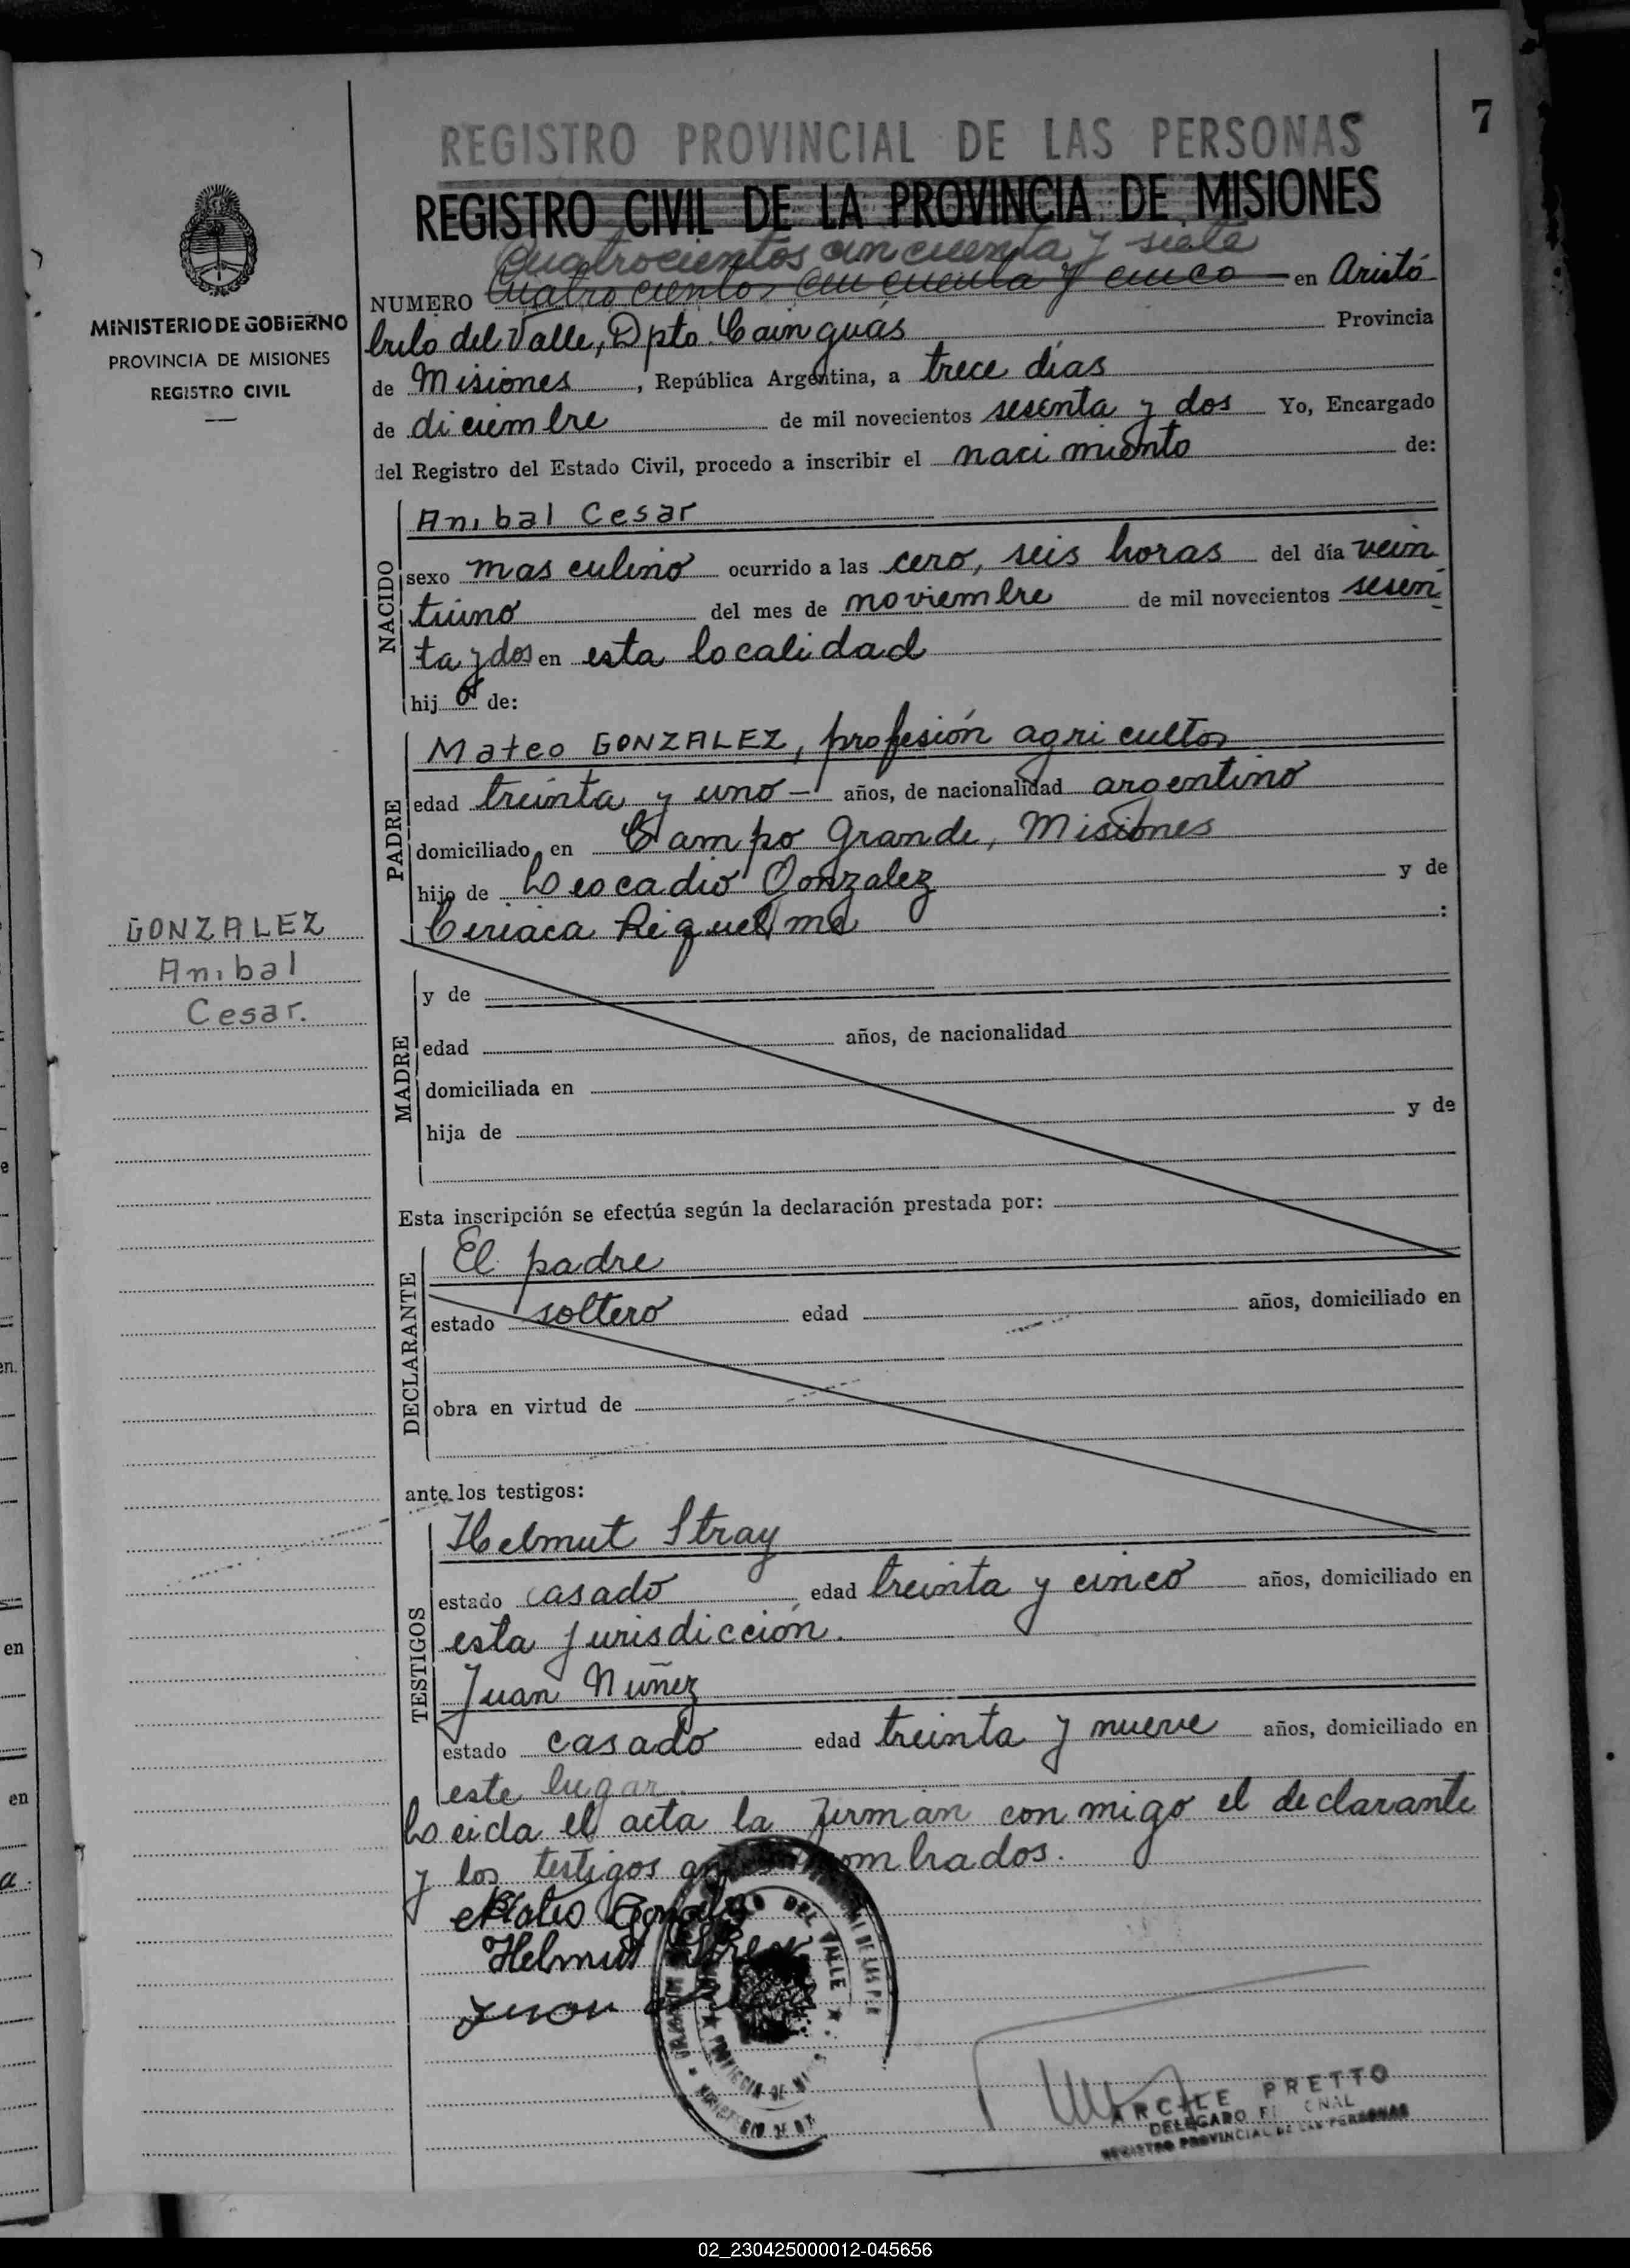 7
REGISTRO PROVINCIAL DE LAS PERSONAS
REGISTRO CIVIL DE LA PROVINCIA DE MISIONES
MINISTERIO DE GOBIERNO
PROVINCIA DE MISIONES
REGISTRO CIVIL
Cuatrocientos cincuenta y siete
NUMERO Cuatrocientos cincuenta y cinco en Aristó
bulo del Valle, Dpto. Cainguás Provincia
de Misiones, República Argentina, a trece días
de diciembre de mil novecientos sesenta y dos Yo, Encargado
del Registro del Estado Civil, procedo a inscribir el nacimiento de:
NACIDO
Anibal Cesar
sexo masculino ocurrido a las cero, seis horas del día vein
tiuno del mes de noviembre de mil novecientos sesen
ta y dos en esta localidad
hijo de:
PADRE
Mateo GONZALEZ, profesión agricultor
edad treinta y uno - años, de nacionalidad argentino
domiciliado en Campo Grande, Misiones
hijo de Leocadio Gonzalez y de
Ciriaca Riquelme :
GONZALEZ
Anibal
Cesar.
MADRE
y de
edad años, de nacionalidad
domiciliada en
hija de y de
Esta inscripción se efectúa según la declaración prestada por:
DECLARANTE
El padre
estado soltero edad años, domiciliado en
obra en virtud de
ante los testigos:
TESTIGOS
Helmut Stray
estado casado, edad treinta y cinco años, domiciliado en
esta jurisdicción.
Juan Nuñez
estado casado edad treinta y nueve años, domiciliado en
este lugar.
Leida el acta la firman conmigo el declarante
y los testigos nombrados.
Mateo Gonzalez
Helmut
Juan
DEL VALLE
ARCILE PRETTO
DELEGADO
REGISTRO PROVINCIAL DE LAS PERSONAS
02_230425000012-045656